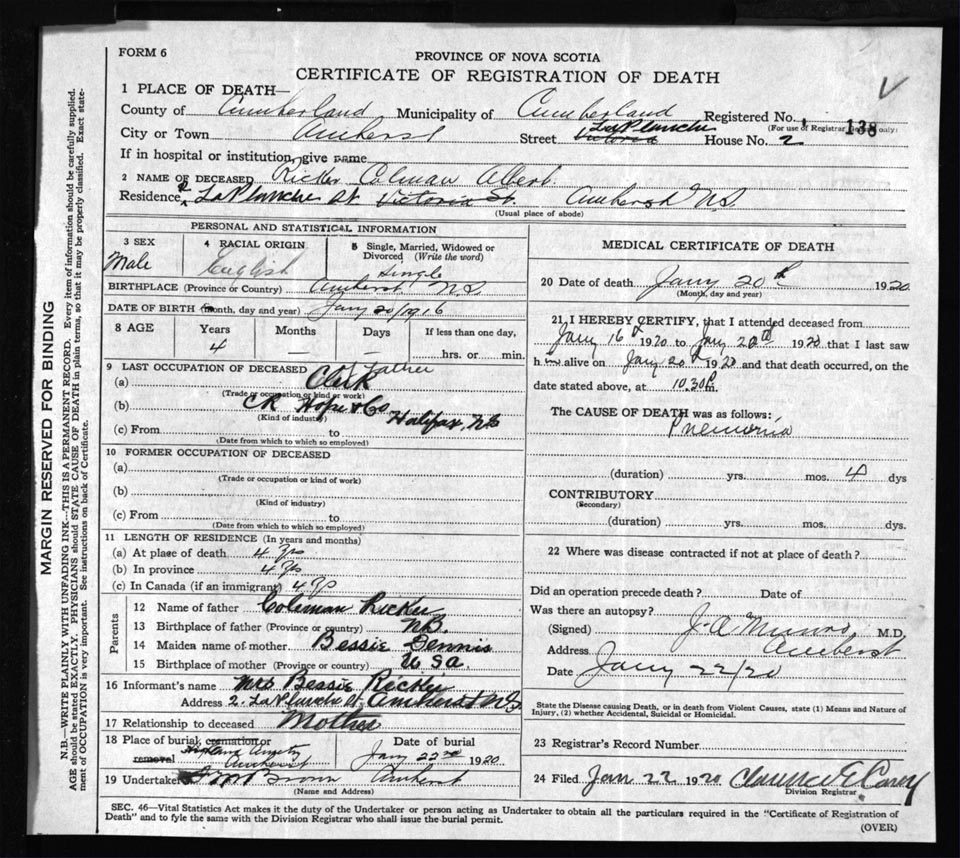 FORM 6
PROVINCE OF NOVA SCOTIA
CERTIFICATE OF REGISTRATION OF DEATH
1 PLACE OF DEATH—
County of Cumberland Municipality of Cumberland Registered No. 138
(For use of Registrar General only:
City or Town Amherst Street Victoria LaPlanche House No. 2
If in hospital or institution, give name
2 NAME OF DECEASED Ricker Colman Albert.
Residence LaPlanche St Victoria St. Amherst N.S.
(Usual place of abode)
PERSONAL AND STATISTICAL INFORMATION
3 SEX Male
4 RACIAL ORIGIN English
5 Single, Married, Widowed or Divorced (Write the word) Single
BIRTHPLACE (Province or Country) Amherst N.S.
DATE OF BIRTH (Month, day and year) Jany 20/1916
8 AGE Years 4 Months — Days — If less than one day, hrs. or min.
9 LAST OCCUPATION OF DECEASED of Father
(a) Clerk
(Trade or occupation or kind of work)
(b) CR Hope & Co Halifax, NS
(Kind of industry)
(c) From to
(Date from which to which so employed)
10 FORMER OCCUPATION OF DECEASED
(a)
(Trade or occupation or kind of work)
(b)
(Kind of industry)
(c) From to
(Date from which to which so employed)
11 LENGTH OF RESIDENCE (In years and months)
(a) At place of death 4 yrs
(b) In province 4 yrs
(c) In Canada (if an immigrant) 4 yrs
Parents
12 Name of father Coleman Ricker
13 Birthplace of father (Province or country) NB.
14 Maiden name of mother Bessie Tennis
15 Birthplace of mother (Province or country) USa.
16 Informant's name Mrs Bessie Ricker
Address 2. LaPlanche St Amherst NS.
17 Relationship to deceased Mother
18 Place of burial, cremation or removal Amherst
Date of burial Jany 22nd 1920
19 Undertaker Brown Amherst
(Name and Address)
MEDICAL CERTIFICATE OF DEATH
20 Date of death Jany 20th 1920
(Month, day and year)
21 I HEREBY CERTIFY, that I attended deceased from
Jany 16th 1920 to Jany 20th 1920 that I last saw
him alive on Jany 20th 1920 and that death occurred, on the
date stated above, at 10.30 P. m.
The CAUSE OF DEATH was as follows:
Pnemonia
(duration) yrs. mos. 4 dys
CONTRIBUTORY
(Secondary)
(duration) yrs. mos. dys.
22 Where was disease contracted if not at place of death?
Did an operation precede death? Date of
Was there an autopsy?
(Signed) J. A. Munro M.D.
Address Amherst
Date Jany 22/20
State the Disease causing Death, or in death from Violent Causes, state (1) Means and Nature of
Injury, (2) whether Accidental, Suicidal or Homicidal.
23 Registrar's Record Number
24 Filed Jan 22 1920 Clarence E Casey
Division Registrar
SEC. 46—Vital Statistics Act makes it the duty of the Undertaker or person acting as Undertaker to obtain all the particulars required in the "Certificate of Registration of
Death" and to fyle the same with the Division Registrar who shall issue the burial permit.
(OVER)
MARGIN RESERVED FOR BINDING
N.B.—WRITE PLAINLY WITH UNFADING INK—THIS IS A PERMANENT RECORD. Every item of information should be carefully supplied.
AGE should be stated EXACTLY. PHYSICIANS should STATE CAUSE OF DEATH in plain terms, so that it may be properly classified. Exact state-
ment of OCCUPATION is very important. See instructions on back of Certificate.